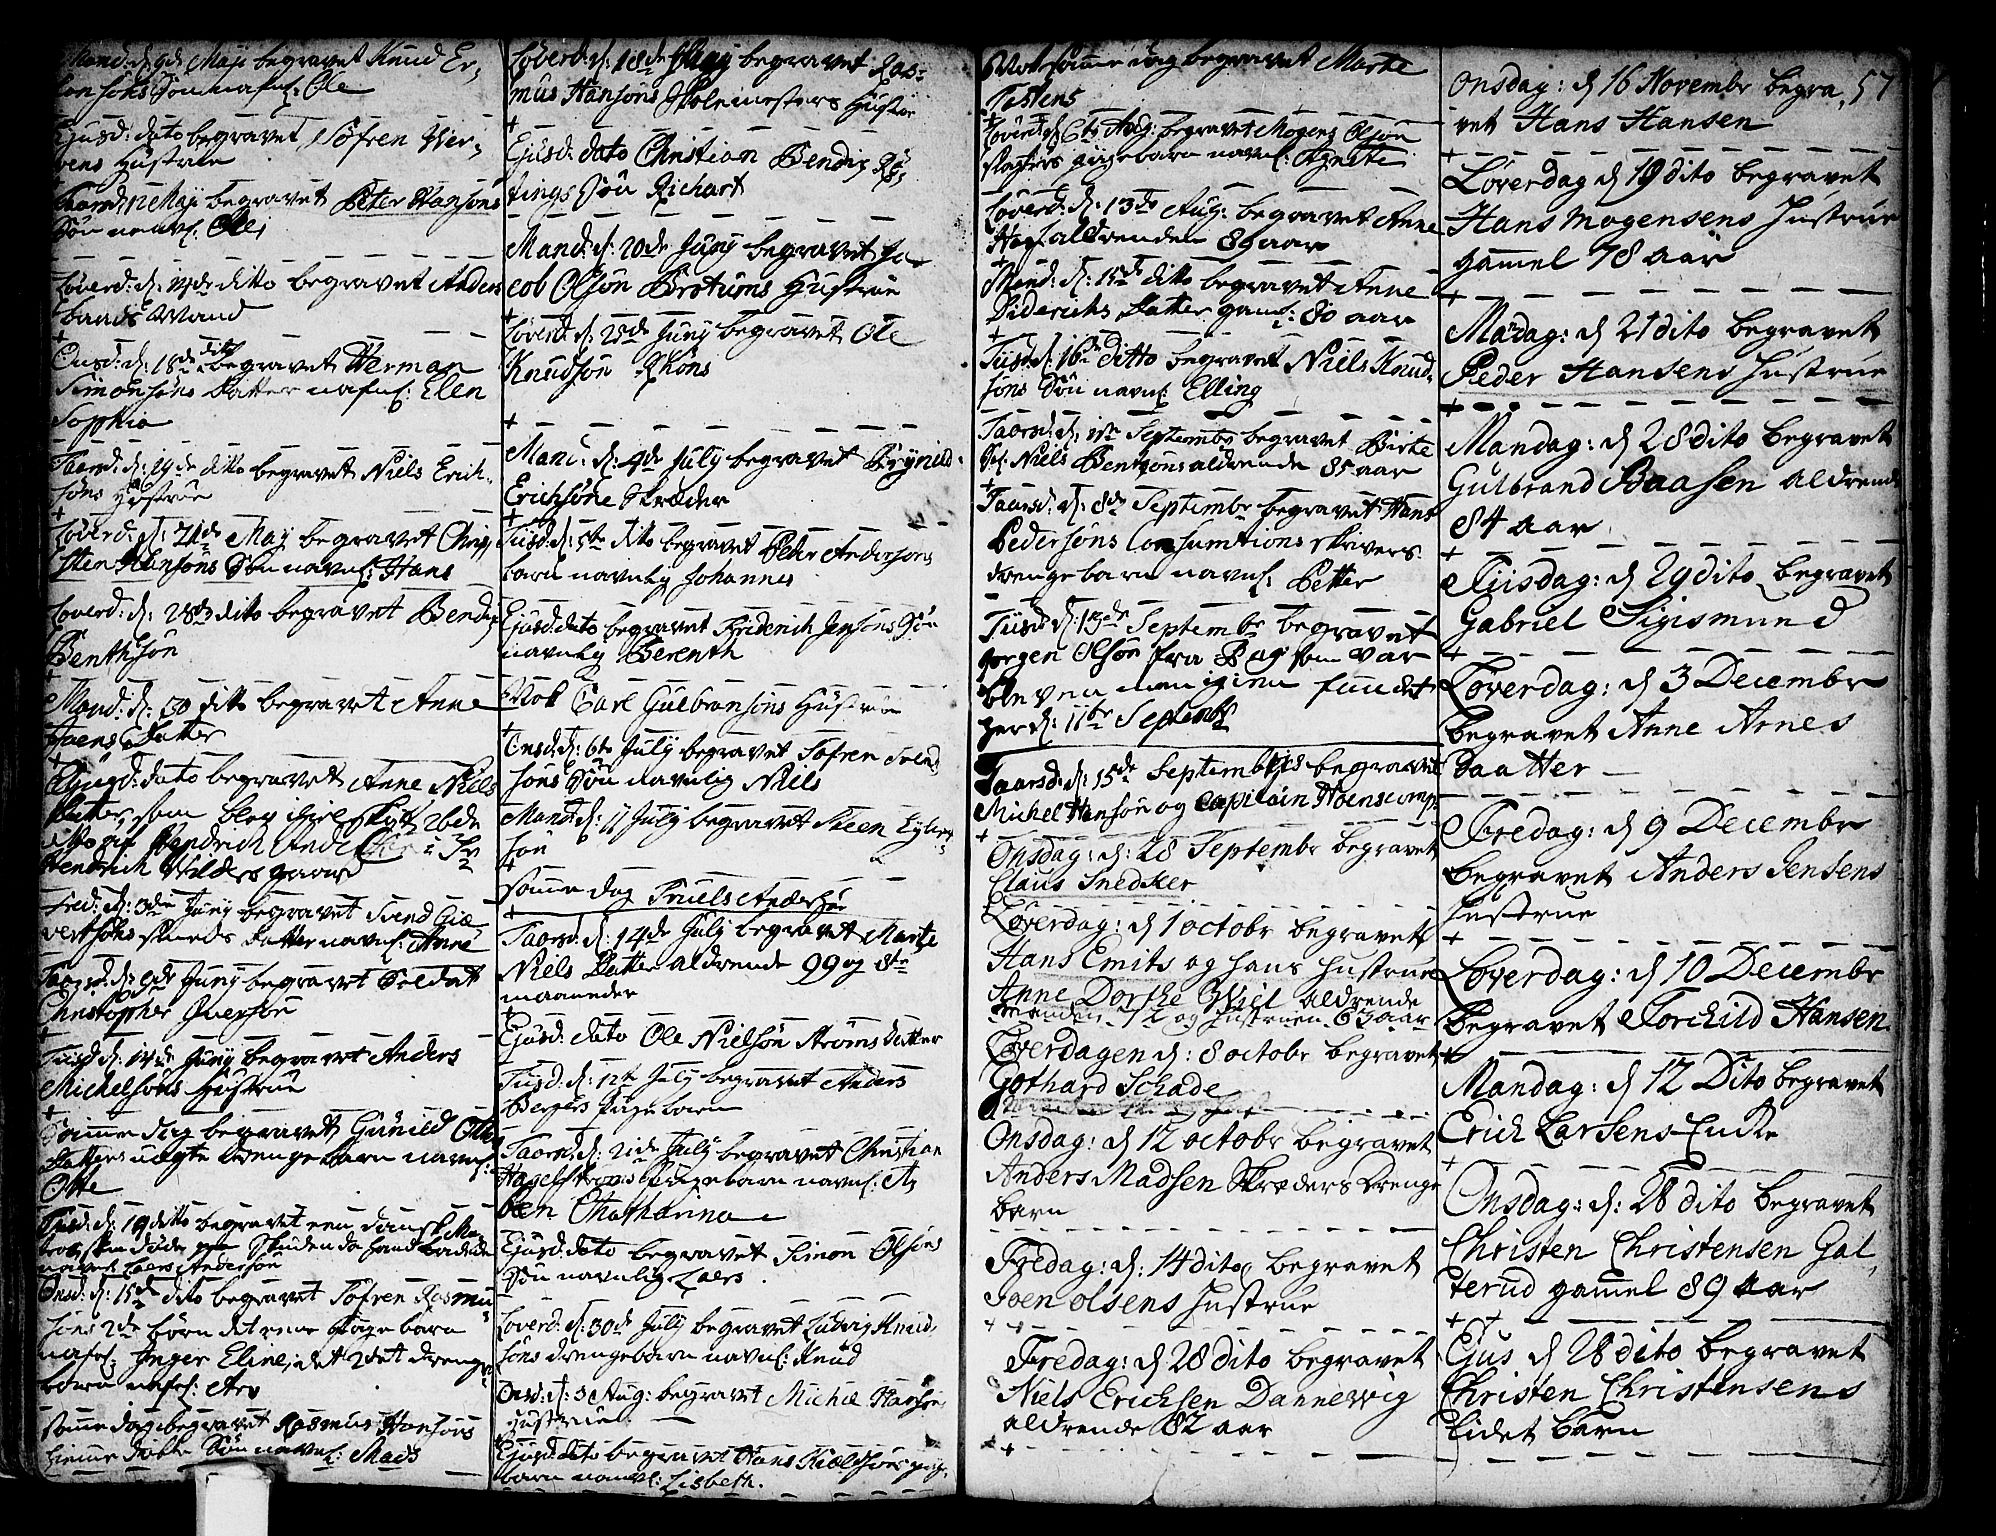 Mand: d: 9de Maji begravet Knud Er,
sens Søn nafnl: Ole
Ejusd: dato begravet Søfren Iver,
sens Hustrue
Taarsd: 12 Maji begravet Peter Hansøns
Søn navnl: Ole
Løverd: d: 14de ditto begravet Anders
Mand
Onsd: d: 18de dito begravet Herman
Simonsøns Datter nafnl: Elen
Sophia
Taarsd: d: 19de ditto begravet Niels Erich,
søns Hustrue
Løverd: d: 21de Maij begravet Chri,
sten Hansøns Søn navnl: Hans
Løverd: d: 28de dito begravet Bendig
Benthsøn
Mand: d: 30 ditto begravet Anne
Joens Datter
Ejusd: dato begravet Anne Niels
Datter, som blev ihielskutt 26de
ditto af Hendrich Ander
Hendrich Wilders gaard
Fred: d: 3de Junij begravet Svend
Smeds Datter navnl: Anne
Taarsd: d: 9de Junij begravet Soldat
Christopher Iversøn
Tiisd: d: 14de Junij begravet Anders
Michelsøns Hustrue
Samme dag begravet Gunild Oles
Datters uægte drengebarn navnl:
Otte
ditto begravet een dansk Ma
navnl: Laers Andersøn
Onsd: d: 15de dito begravet Søfren Rasmu
søns 2de børn det eene Pigebarn
nafnl: Inger Eline, det 2det drenge
barn nafnl: Arv
samme dag begravet Rasmus Hansøns
Søn navnl: Mads
Løverd: d: 18de Junij begravet Ras,
mus Hansøns Skolemesters Hustrue
Ejusd: dato Christian Bendix
tings Søn Richart
Mand: d: 20de Junij begravet Ja
cob Olsøn Brotums Hustrue
Løverd: d: 25de Junij begravet Ole
Knudsøn Rhøns
Mand: d: 4de Julij begravet Brynild
Erichsøne Skræder
Tiisd: d: 5te dito begravet Peter Andersøns
barn navnlig Johannes
Ejusd: dato begravet Friderich Jensøns Søn
navnlig Berenth
Nok Carl Gulbransøns Hustrue
Onsd: d: 6te Julij begravet Søfren Svend
søns Søn navnlig Niels
Mand: d: 11 Julij begravet Steen
søn
samme dag Truels Andersøn
Taarsd: d: 14de Julij begravet Marte
Niels Datter aldrende 99 og 8te
maaneder
Ejusd: dato Ole Nielsøn Strøms datter
Tiisd: d: 12te Julij begravet Anders
Bergers Pigebarn
Taarsd: d: 21de Julij begravet Christian
Pigebarn navnl:
Chatharina
Ejusd: dato begravet Simon Olsøns
Søn navnlig Laers
Løverd: d: 30de Julij begravet Ludvig Knud,
søns drengebarn navnl: Knud
Onsd: d: 3 Aug: begravet Michel Hansøns
Hustrue
Ejusd: dato begravet Hans pige,
barn navnl: Lisbeth.
Nok samme dag begravet Marte
Tostens
Løverd: d: 6te Aug: begravet Mogens Olsøn
pigebarn navnl: Agnete
Løverd: d: 13de Aug: begravet Anne
aldrenden 89 aar
Mand: d: 15de ditto begravet Anne
Diderichs Datter gaml: 80 aar
Tiisd: d: 16de ditto begravet Niels Knud,
søns Søn navnl: Elling
Taarsd: d: Septembr begravet Birte
Sl: Niels Bentzøns aldrende 85 aar
Taarsd: d: 8de Septembr begravet Hans
Pedersøns Consumtions skrivers
drengebarn navnl: Petter
Tiisd: d: 13de Septembr begravet
Jørgen Olsøn fra Bag som var
bleven men igien fundet
her d: 11te Septembr
Taarsd: d: 15de Septembris begravet
Michel Hansøn og Capitain Hoens comp:
Onsdag: d: 28 Septembr begravet
Claus Snedker
Løverdag: d 1 octobr begravet
Hans Emits og hans Hustrue
Anne Dorthe Wiel aldrende
manden 72 og Hustruen 63 aar
Løverdagen d: 8 octobr begravet
Gothard Schade
Onsdag: d 12 octobr begravet
Anders Madsen Skræders Drenge
barn
Fredag: d: 14 dito begravet
Joen olsens Hustrue
Fredag: d 28 dito begravet
Niels Erichsen Dannewig
aldrende 82 aar
57
Onsdag: d 16 Novembr begra,
vet Hans Hansen
Løverdag d 19 dito begravet
Hans Mogensens Hustrue
gamel 78 aar
Mandag: d 21 dito begravet
Peder Hansens Hustrue
Mandag: d 28 dito begravet
Gulbrand Baasen aldrende
84 aar
Tiisdag: d 29 dito begravet
Gabriel Sigismund
Løverdag: d 3 Decembr
begravet Anne Arnes
Daatter
Fredag: d 9 Decembr
begravet Anders Jensens
Hustrue
Løverdag: d 10 Decembr
begravet Torchild Hansen
Mandag: d 12 Dito begravet
Erich Larsens Encke
Onsdag: d: 28 dito begravet
Christen Christensen Gal,
terud gamel 89 aar
Ejus d 28 dito begravet
Christen Christensens
Lidet barn